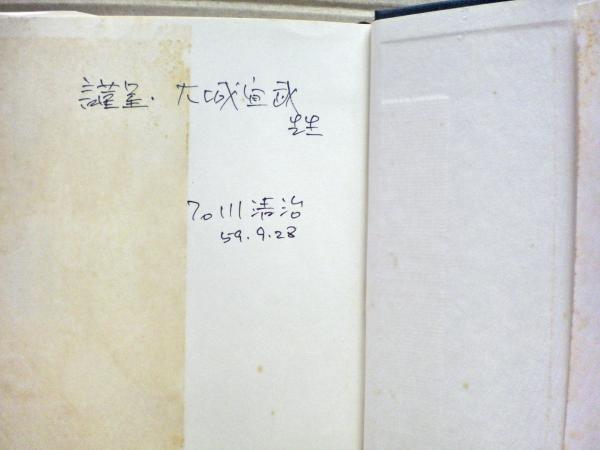 謹呈. 大城宜武
先生
石川清治
59.9.28